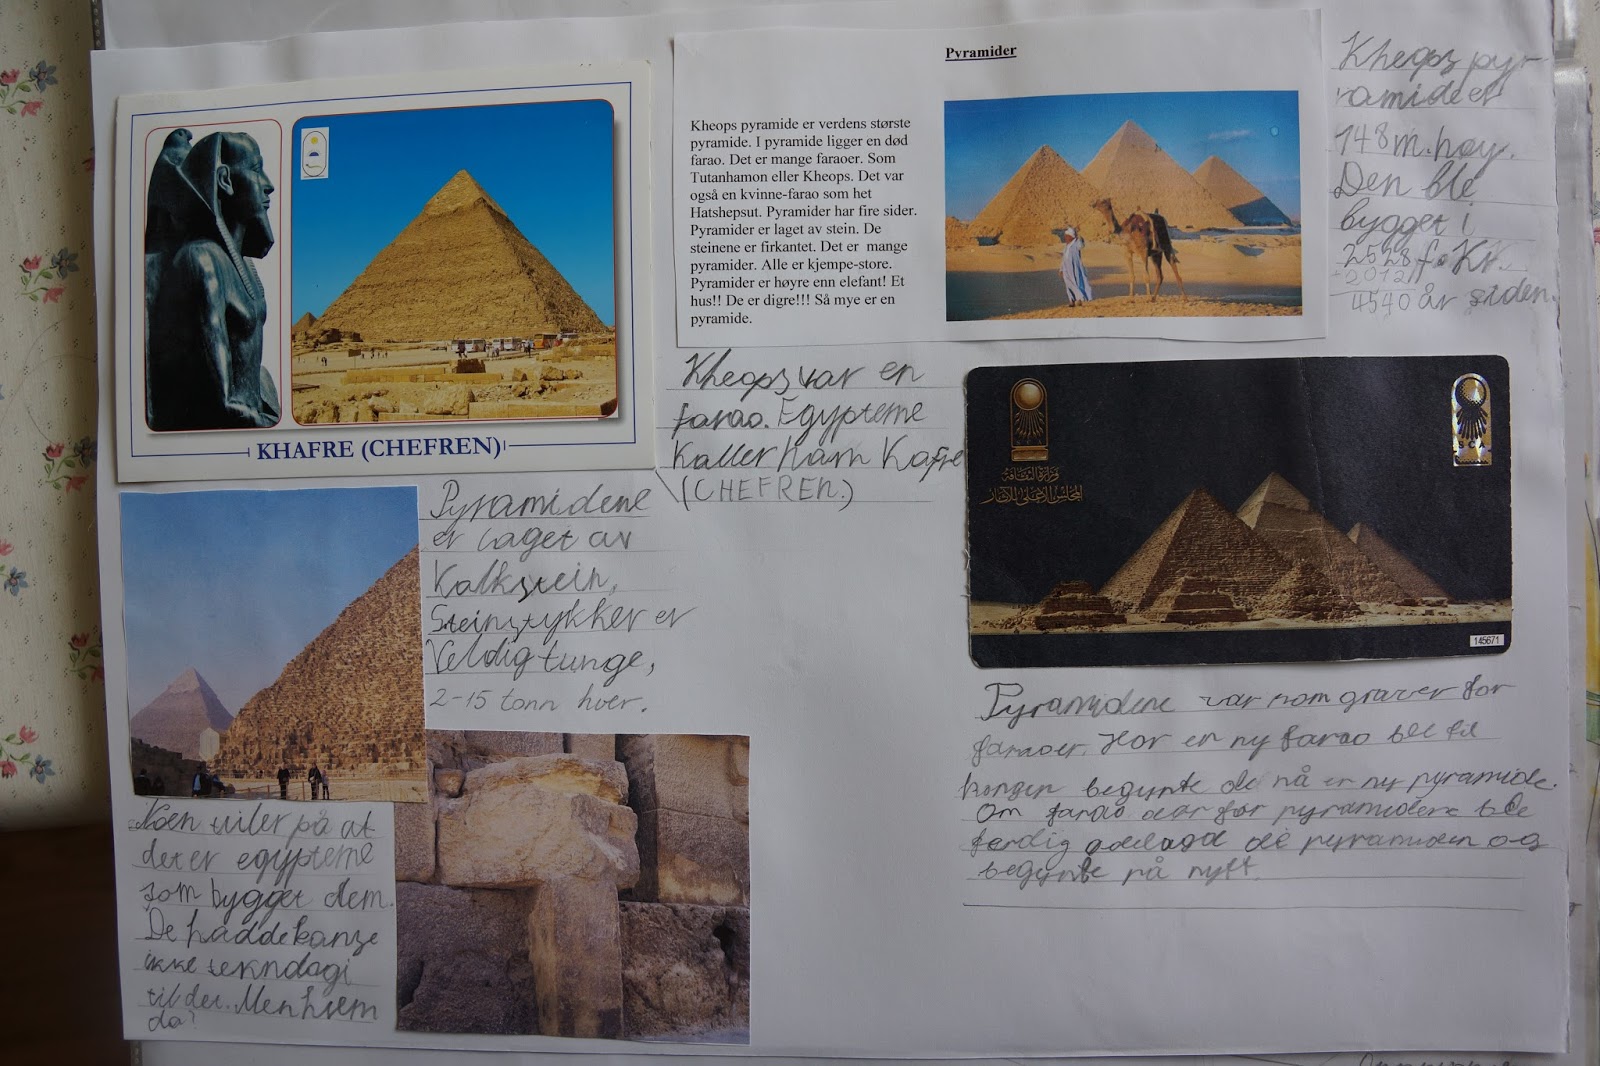 KHAFRE (CHEFREN)
Pyramider
Kheops pyramide er verdens største
pyramide. I pyramide ligger en død
farao. Det er mange faraoer. Som
Tutanhamon eller Kheops. Det var
også en kvinne-farao som het
Hatshepsut. Pyramider har fire sider.
Pyramider er laget av stein. De
steinene er firkantet. Det er mange
pyramider. Alle er kjempe-store.
Pyramider er høyre enn elefant! Et
hus!! De er digre!!! Så mye er en
pyramide.
Kheops pyr-
ramide er
148 m. høy.
Den ble
bygget i
2528 f. Kr.
+2012
4540 år siden.
Kheops var en
farao. Egypterne
Kaller ham Kafre
(CHEFREN.)
وزارة الثقافة
المجلس الأعلى للآثار
SCA
145671
Pyramidene
er laget av
Kalkstein,
Steinstykker er
Veldig tunge,
2-15 tonn hver.
Noen tviler på at
det er egypterne
som bygget dem.
De hadde kanze
ikke teknologi
til det. Men hvem
da?
Pyramidene var som graver for
faraoer. Hor en ny farao ble til
kongen begynte de på er ny pyramide.
Om farao dør før pyramidene ble
ferdig ødelagd de pyramiden og
begynte på nytt.